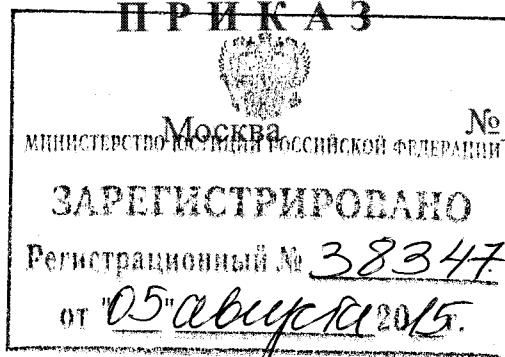 ПРИКАЗ
Москва №
МИНИСТЕРСТВО ЮСТИЦИИ РОССИЙСКОЙ ФЕДЕРАЦИИ
ЗАРЕГИСТРИРОВАНО
Регистрационный № 38347
от "05" августа 2015г.